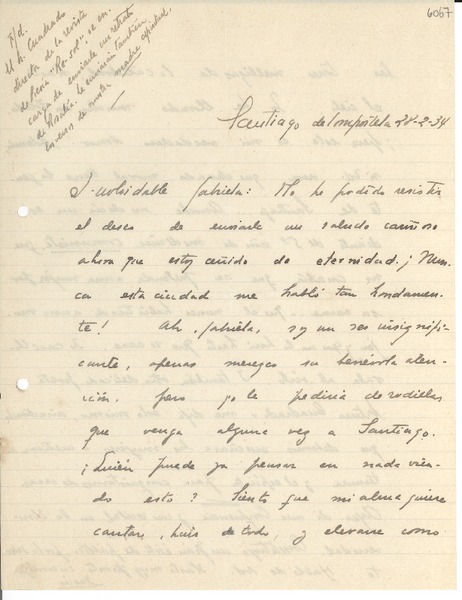 6067
P/d.
M. A. Cuadrado
director de la revista
de Vigo "Ro-sol" se en-
carga de enviarle un retrato
de Rosalía. Le enviarán también
los ecos de nuestra madre espiritual.
Santiago de Compostela 28-2-34
Inolvidable Gabriela: No he podido resistir
el deseo de enviarle un saludo cariñoso
ahora que estoy ceñido de eternidad. ¡Nun-
ca esta ciudad me habló tan hondamen-
te! Ah, Gabriela, soy un ser insignifi-
cante, apenas merezco su benévola aten-
ción. Pero yo le pediría de rodillas
que venga alguna vez a Santiago.
¿Quién puede ya pensar en nada vien-
do esto? Siento que mi alma quiere
cantar, huir de todo, y elevarse como